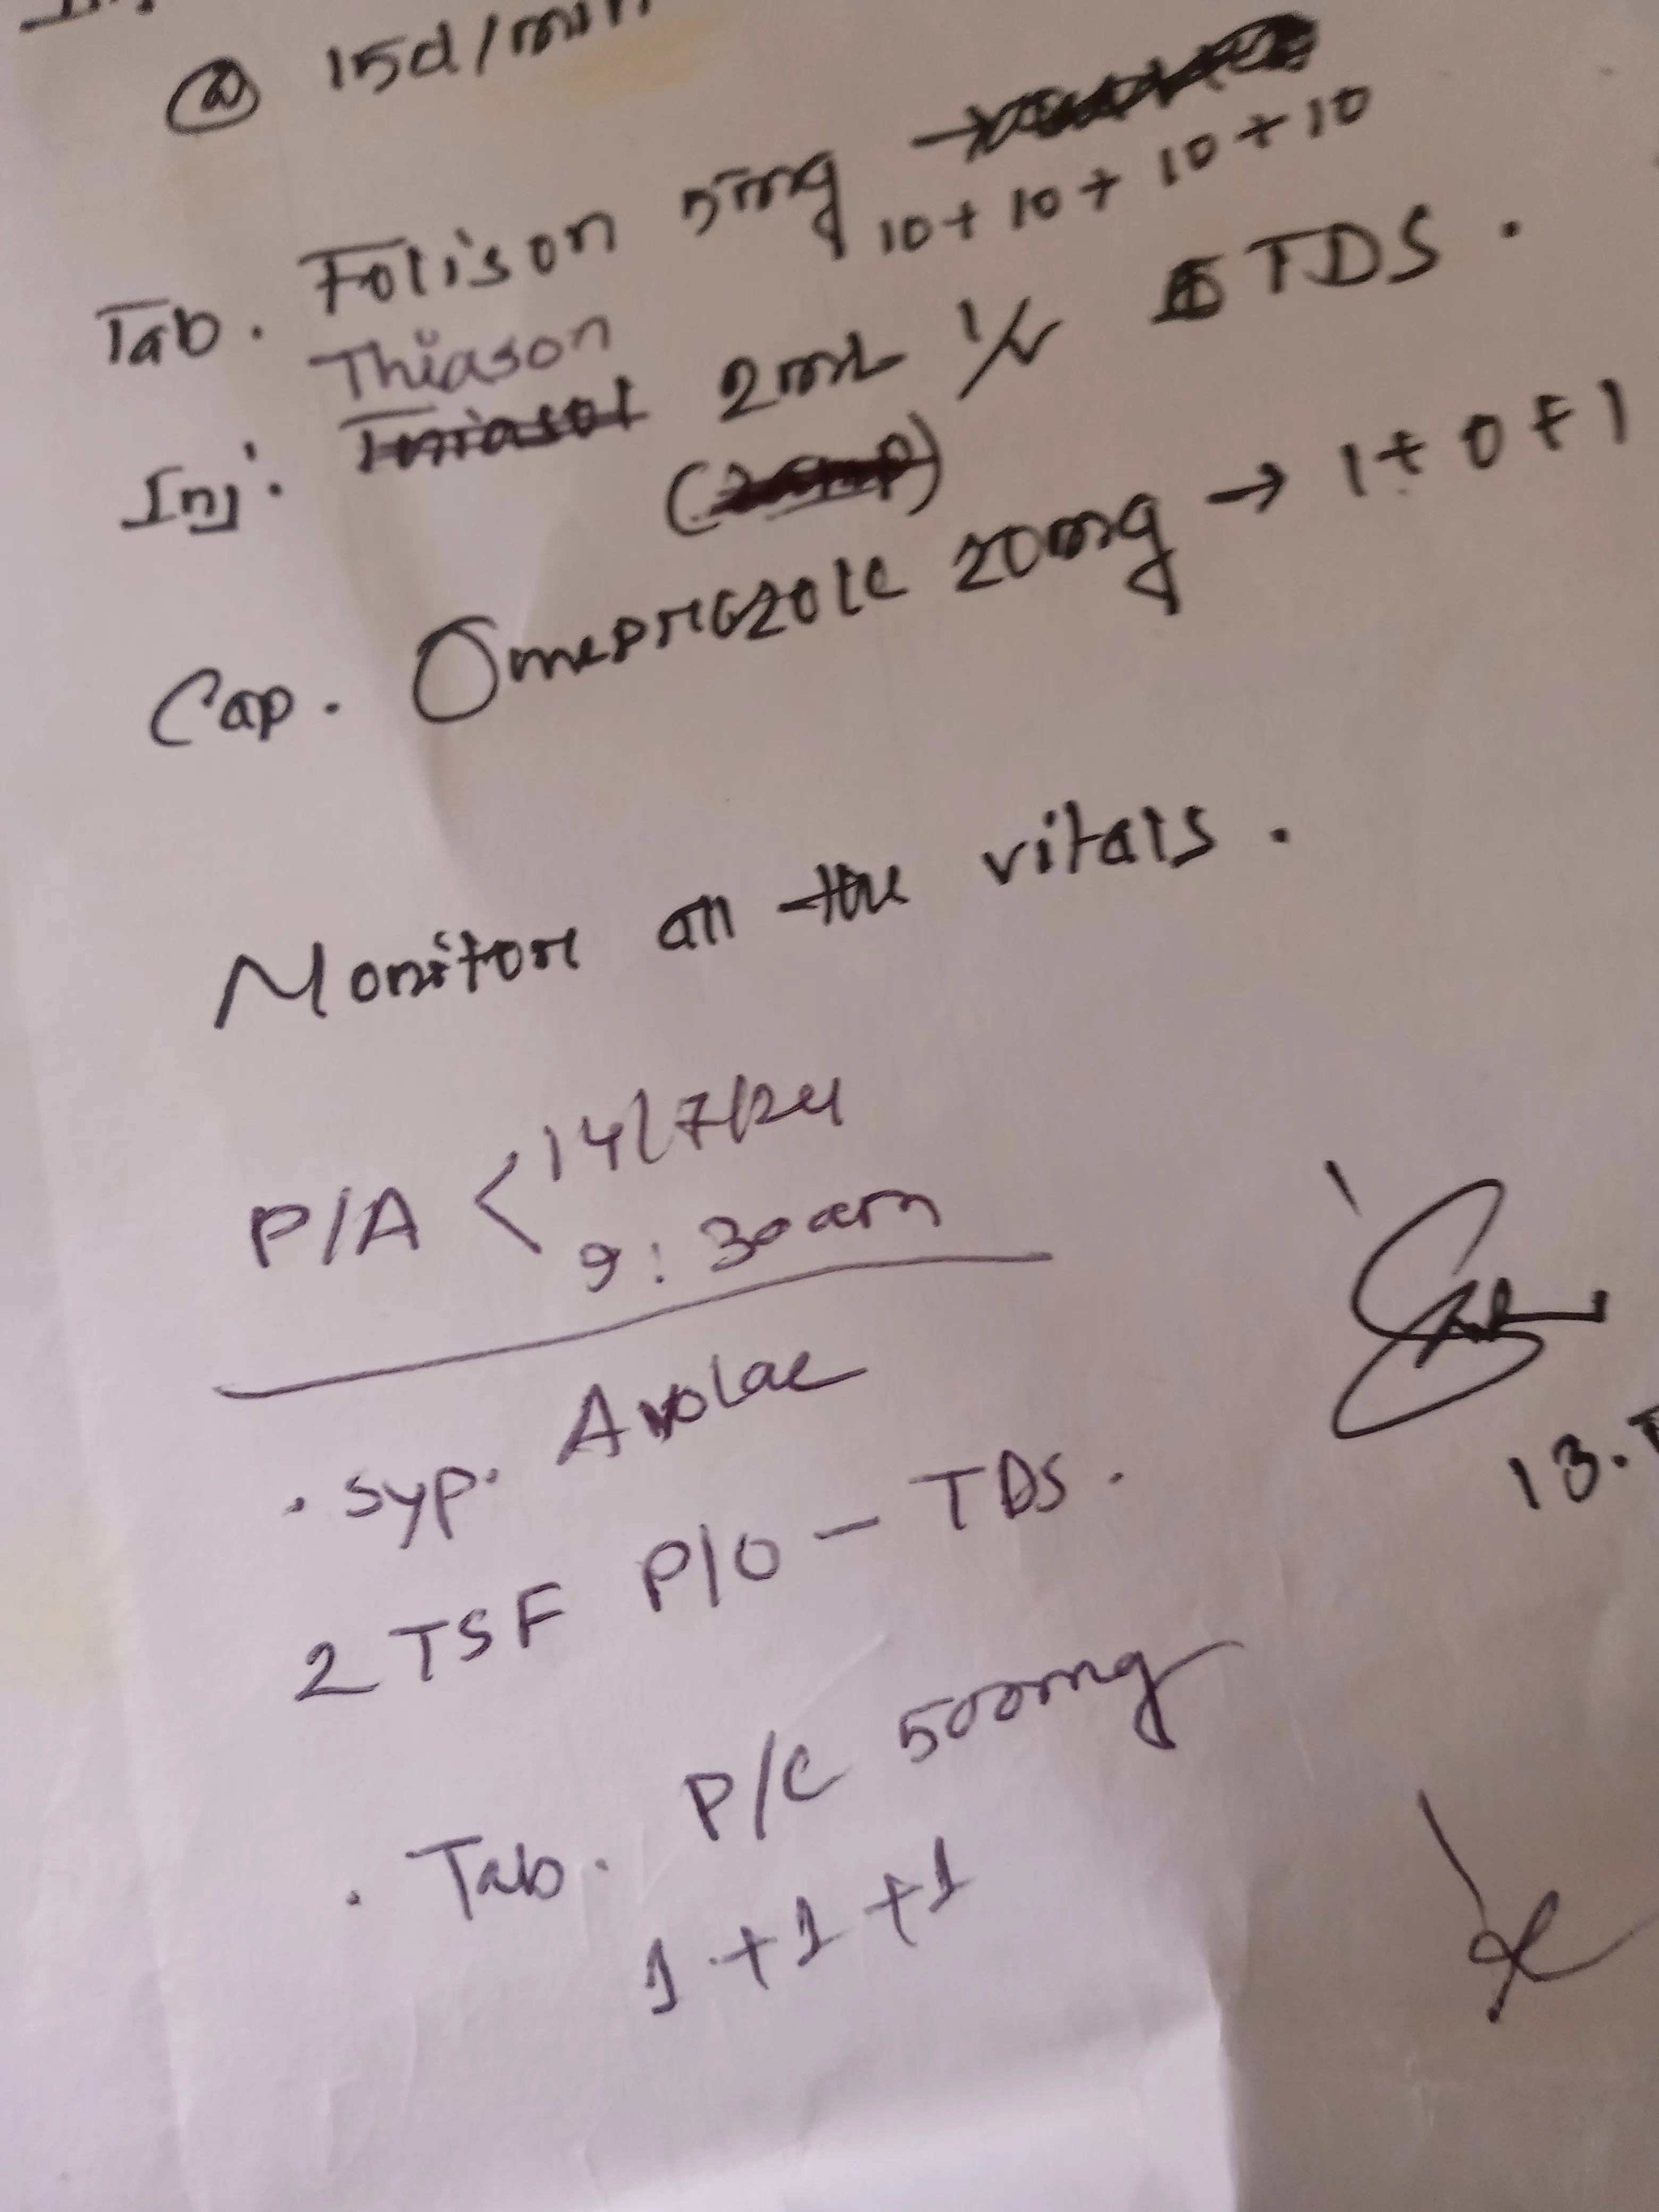 @ 15d/min
Tab. Folison 5mg →
10 + 10 + 10 + 10
Thiason
Inj. 2ml I/V TDS.
Cap. Omeprazole 20mg → 1 + 0 + 1
Monitor all the vitals.
P/A < 14/7/24
9:30am
. Syp. Avolac
2 TSF P/O - TDS.
. Tab. P/C 500mg
1 + 1 + 1
13.